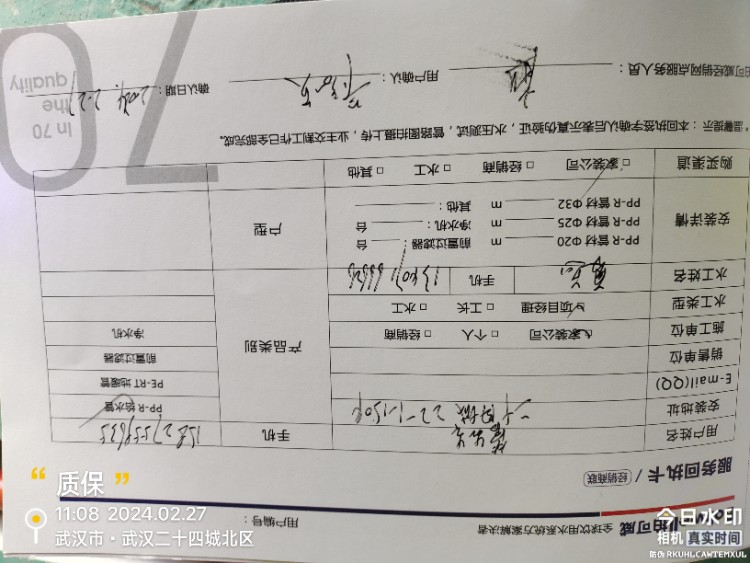 伯可威 全球饮用水系统方案解决者
用户编号：
服务回执卡 / 经销商联
用户姓名 手机 15827559635
安装地址 22-1-1504 PP-R给水管
E-mail(QQ) PE-RT地暖管
销售单位 前置过滤器
施工单位 家装公司 □ 个人 □ 经销商 产品类别 净水机
水工类型 项目经理 □ 工长 □ 水工
水工姓名 手机
安装详情 PP-R管材 Φ20 m 前置过滤器： 台 户型
PP-R管材 Φ25 m 净水机： 台
PP-R管材 Φ32 m 其他：
购买渠道 □ 家装公司 □ 经销商 □ 水工 □ 其他
*温馨提示：本回执签字确认后表示真伪验证，水压测试，管路图拍摄上传，业主交割工作已全部完成。
可威经销网点服务人员： 用户确认： 确认日期： 2024.2.27
70
In 70
the
quality
质保
11:08 2024.02.27
武汉市·武汉二十四城北区
今日水印
相机 真实时间
防伪 RKUHLCAWTEMXUL